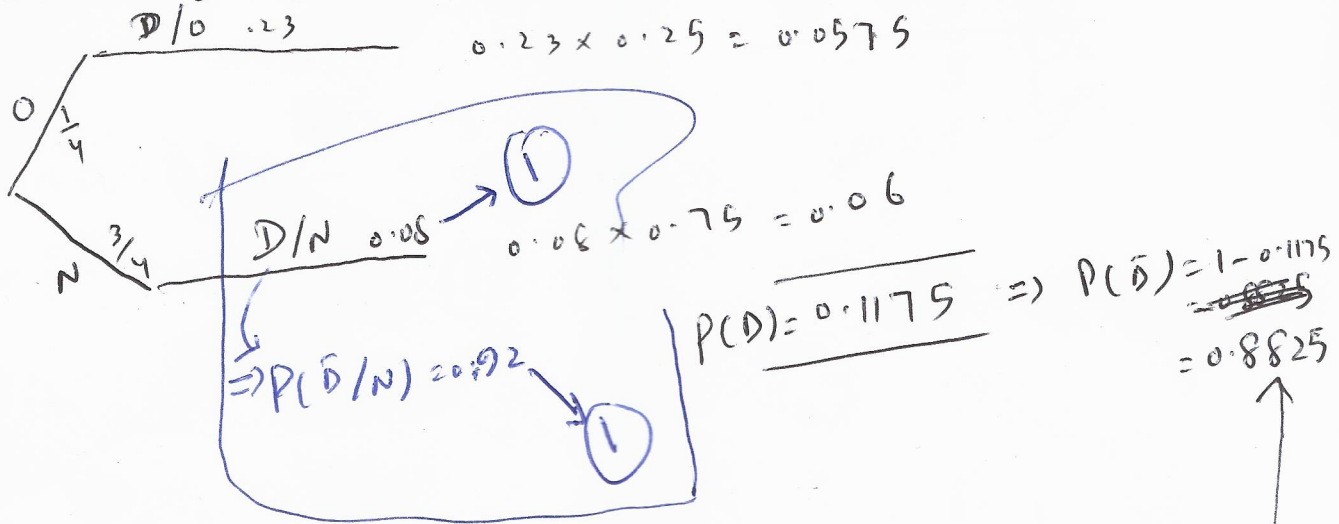 D/O .23
0.23 x 0.25 = 0.0575
O
1/4
1
D/N 0.08
0.08 x 0.75 = 0.06
3/4
N
P(D)= 0.1175 => P(D̄) = 1-0.1175
= 0.8825
=> P(D̄/N) = 0.92
1